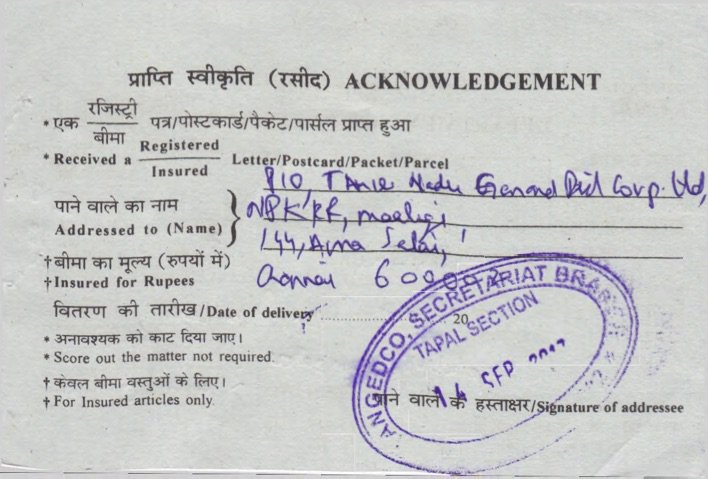 प्राप्ति स्वीकृति (रसीद) ACKNOWLEDGEMENT
* एक रजिस्ट्री/बीमा पत्र/पोस्टकार्ड/पैकेट/पार्सल प्राप्त हुआ
* Received a Registered/Insured Letter/Postcard/Packet/Parcel
PIO, Nadu Corp. Ltd,
पाने वाले का नाम
NPKRR, maaligi
Addressed to (Name)
144, Anna Salai,
† बीमा का मूल्य (रुपयों में)
† Insured for Rupees
Chennai 600002
वितरण की तारीख/Date of delivery 20
* अनावश्यक को काट दिया जाए।
* Score out the matter not required.
† केवल बीमा वस्तुओं के लिए।
† For Insured articles only.
पाने वाले के हस्ताक्षर/Signature of addressee
ANGEDCO, SECRETARIAT BRANCH
TAPAL SECTION
14 SEP